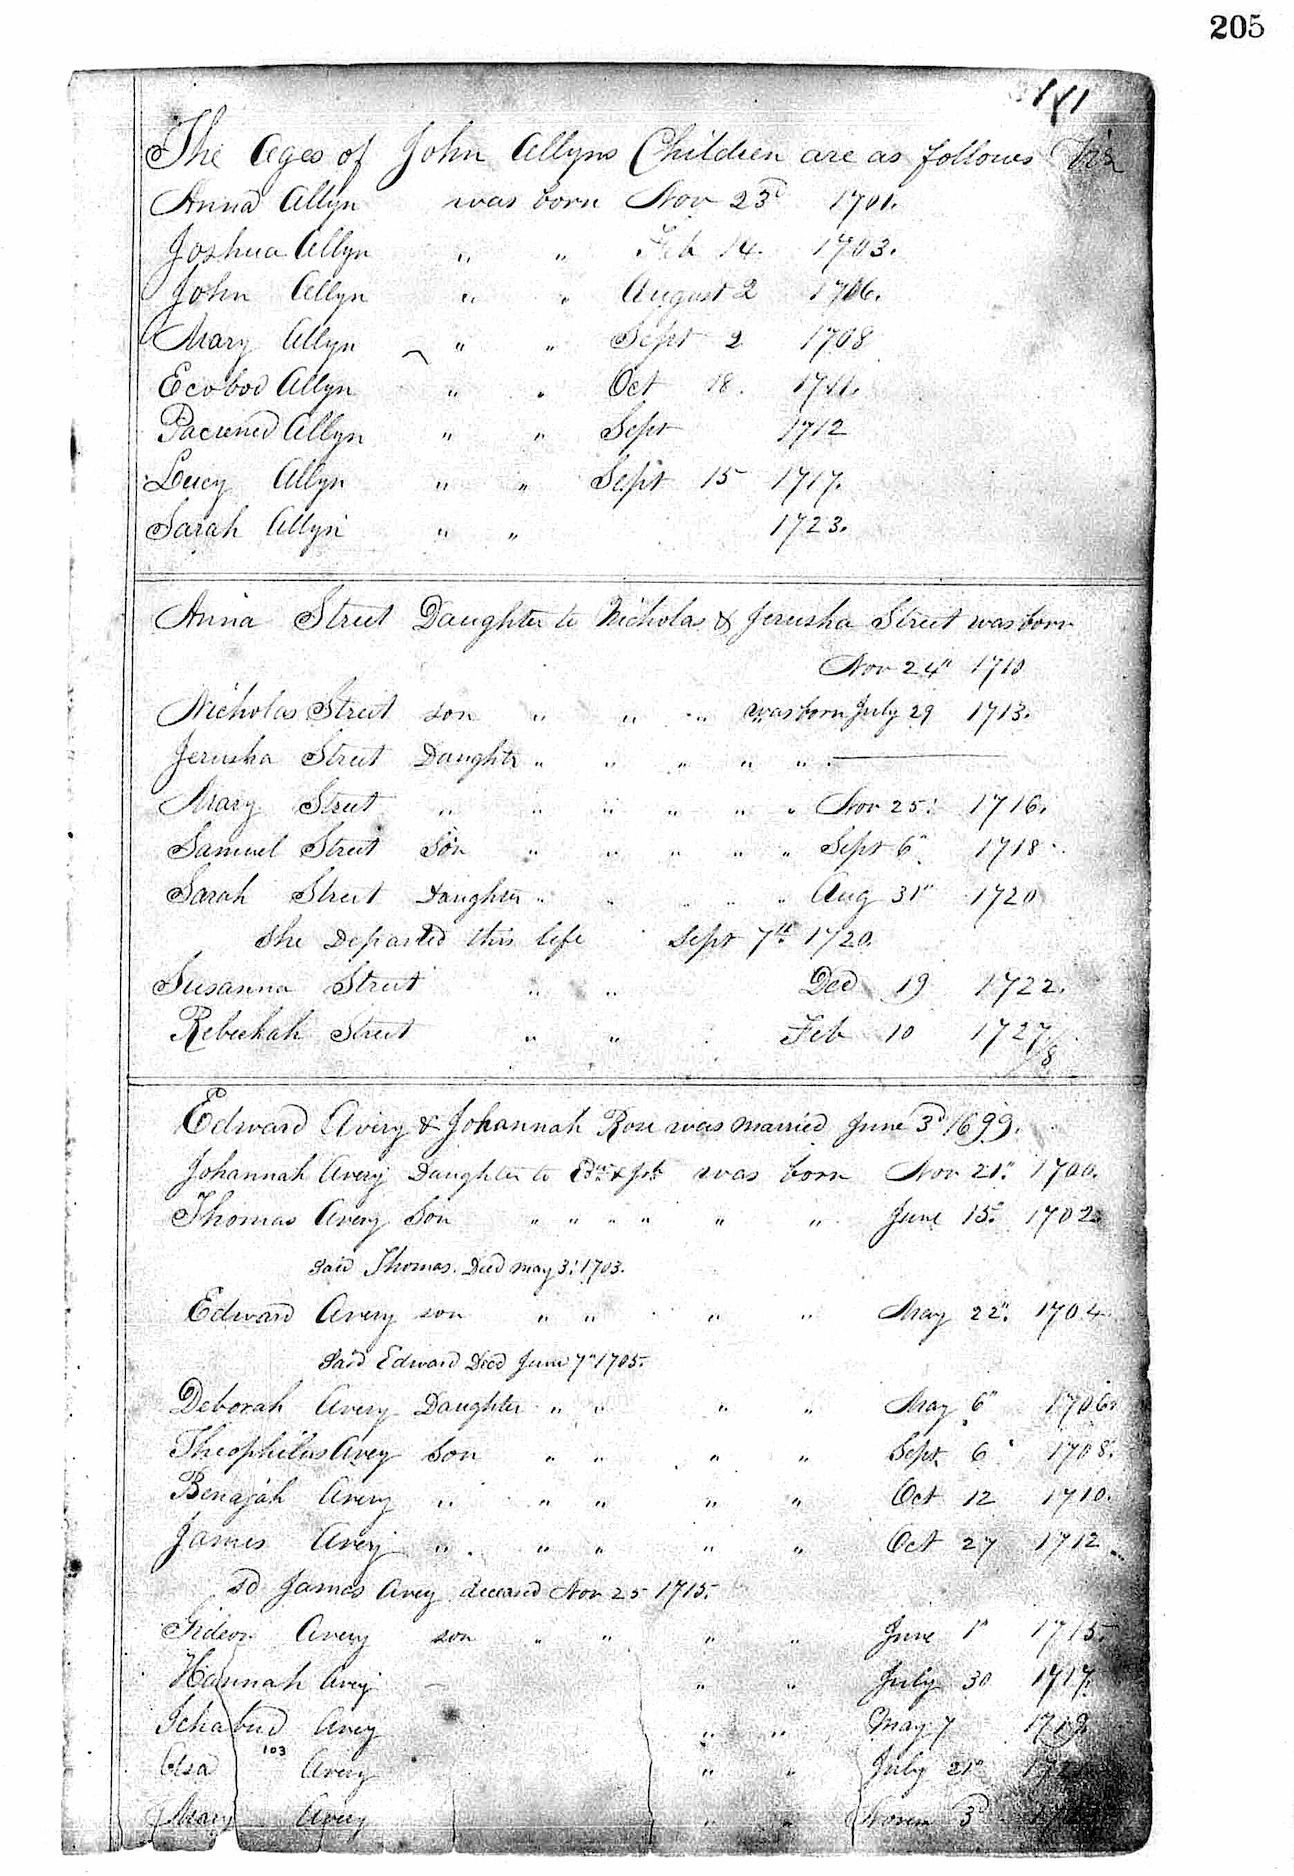 205
The Ages of John Allyns Children are as follows Viz
Anna Allyn was born Nov 23d 1701.
Joshua Allyn " " Feb 14. 1703.
John Allyn " " August 2 1706.
Mary Allyn " " Sept 2 1708
Ecobod Allyn " " Oct 18. 1711.
Allyn " " Sept 1712
Lucy Allyn " " Sept 15 1717.
Sarah Allyn " " 1723.
Anna Street Daughter to Nicholas & Jerusha Street was born
Nov 24" 1710
Nicholas Street son " " " was born July 29 1713.
Jerusha Street Daughtr " " " " "
Mary Street " " " " " " Nov 25. 1716.
Samuel Street Son " " " " " Sept 6" 1718
Sarah Street Daughter " " " " " Aug 31" 1720
she Departed this life Sept 7th 1720.
Susanna Street " " Dec 19 1722.
Rebeckah Street " " Feb 10 1727/8
Edward Avery & Johannah Rose was married June 3d 1699.
Johannah Avery Daughter to Edw & Joh was born Nov 21" 1700.
Thomas Avery Son " " " " " " June 15. 1702
said Thomas Died may 3. 1703.
Edward Avery son " " " " May 22". 1704
said Edward Died June 7" 1705.
Deborah Avery Daughter " " " " May 6" 1706
Theophilus Avery Son " " " " Sept 6 1708.
Benajah Avery " " " " " Oct 12 1710.
James Avery " " " " " Oct 27 1712
sd James Avery deceased Nov 25 1715.
Gideon Avery son " " " " June 1" 1715.
Hannah Avery " " July 30 1717.
Ichabud Avery " " May 7 1719.
103
Avery " " July 21"
Mary Avery " " Novem 3d